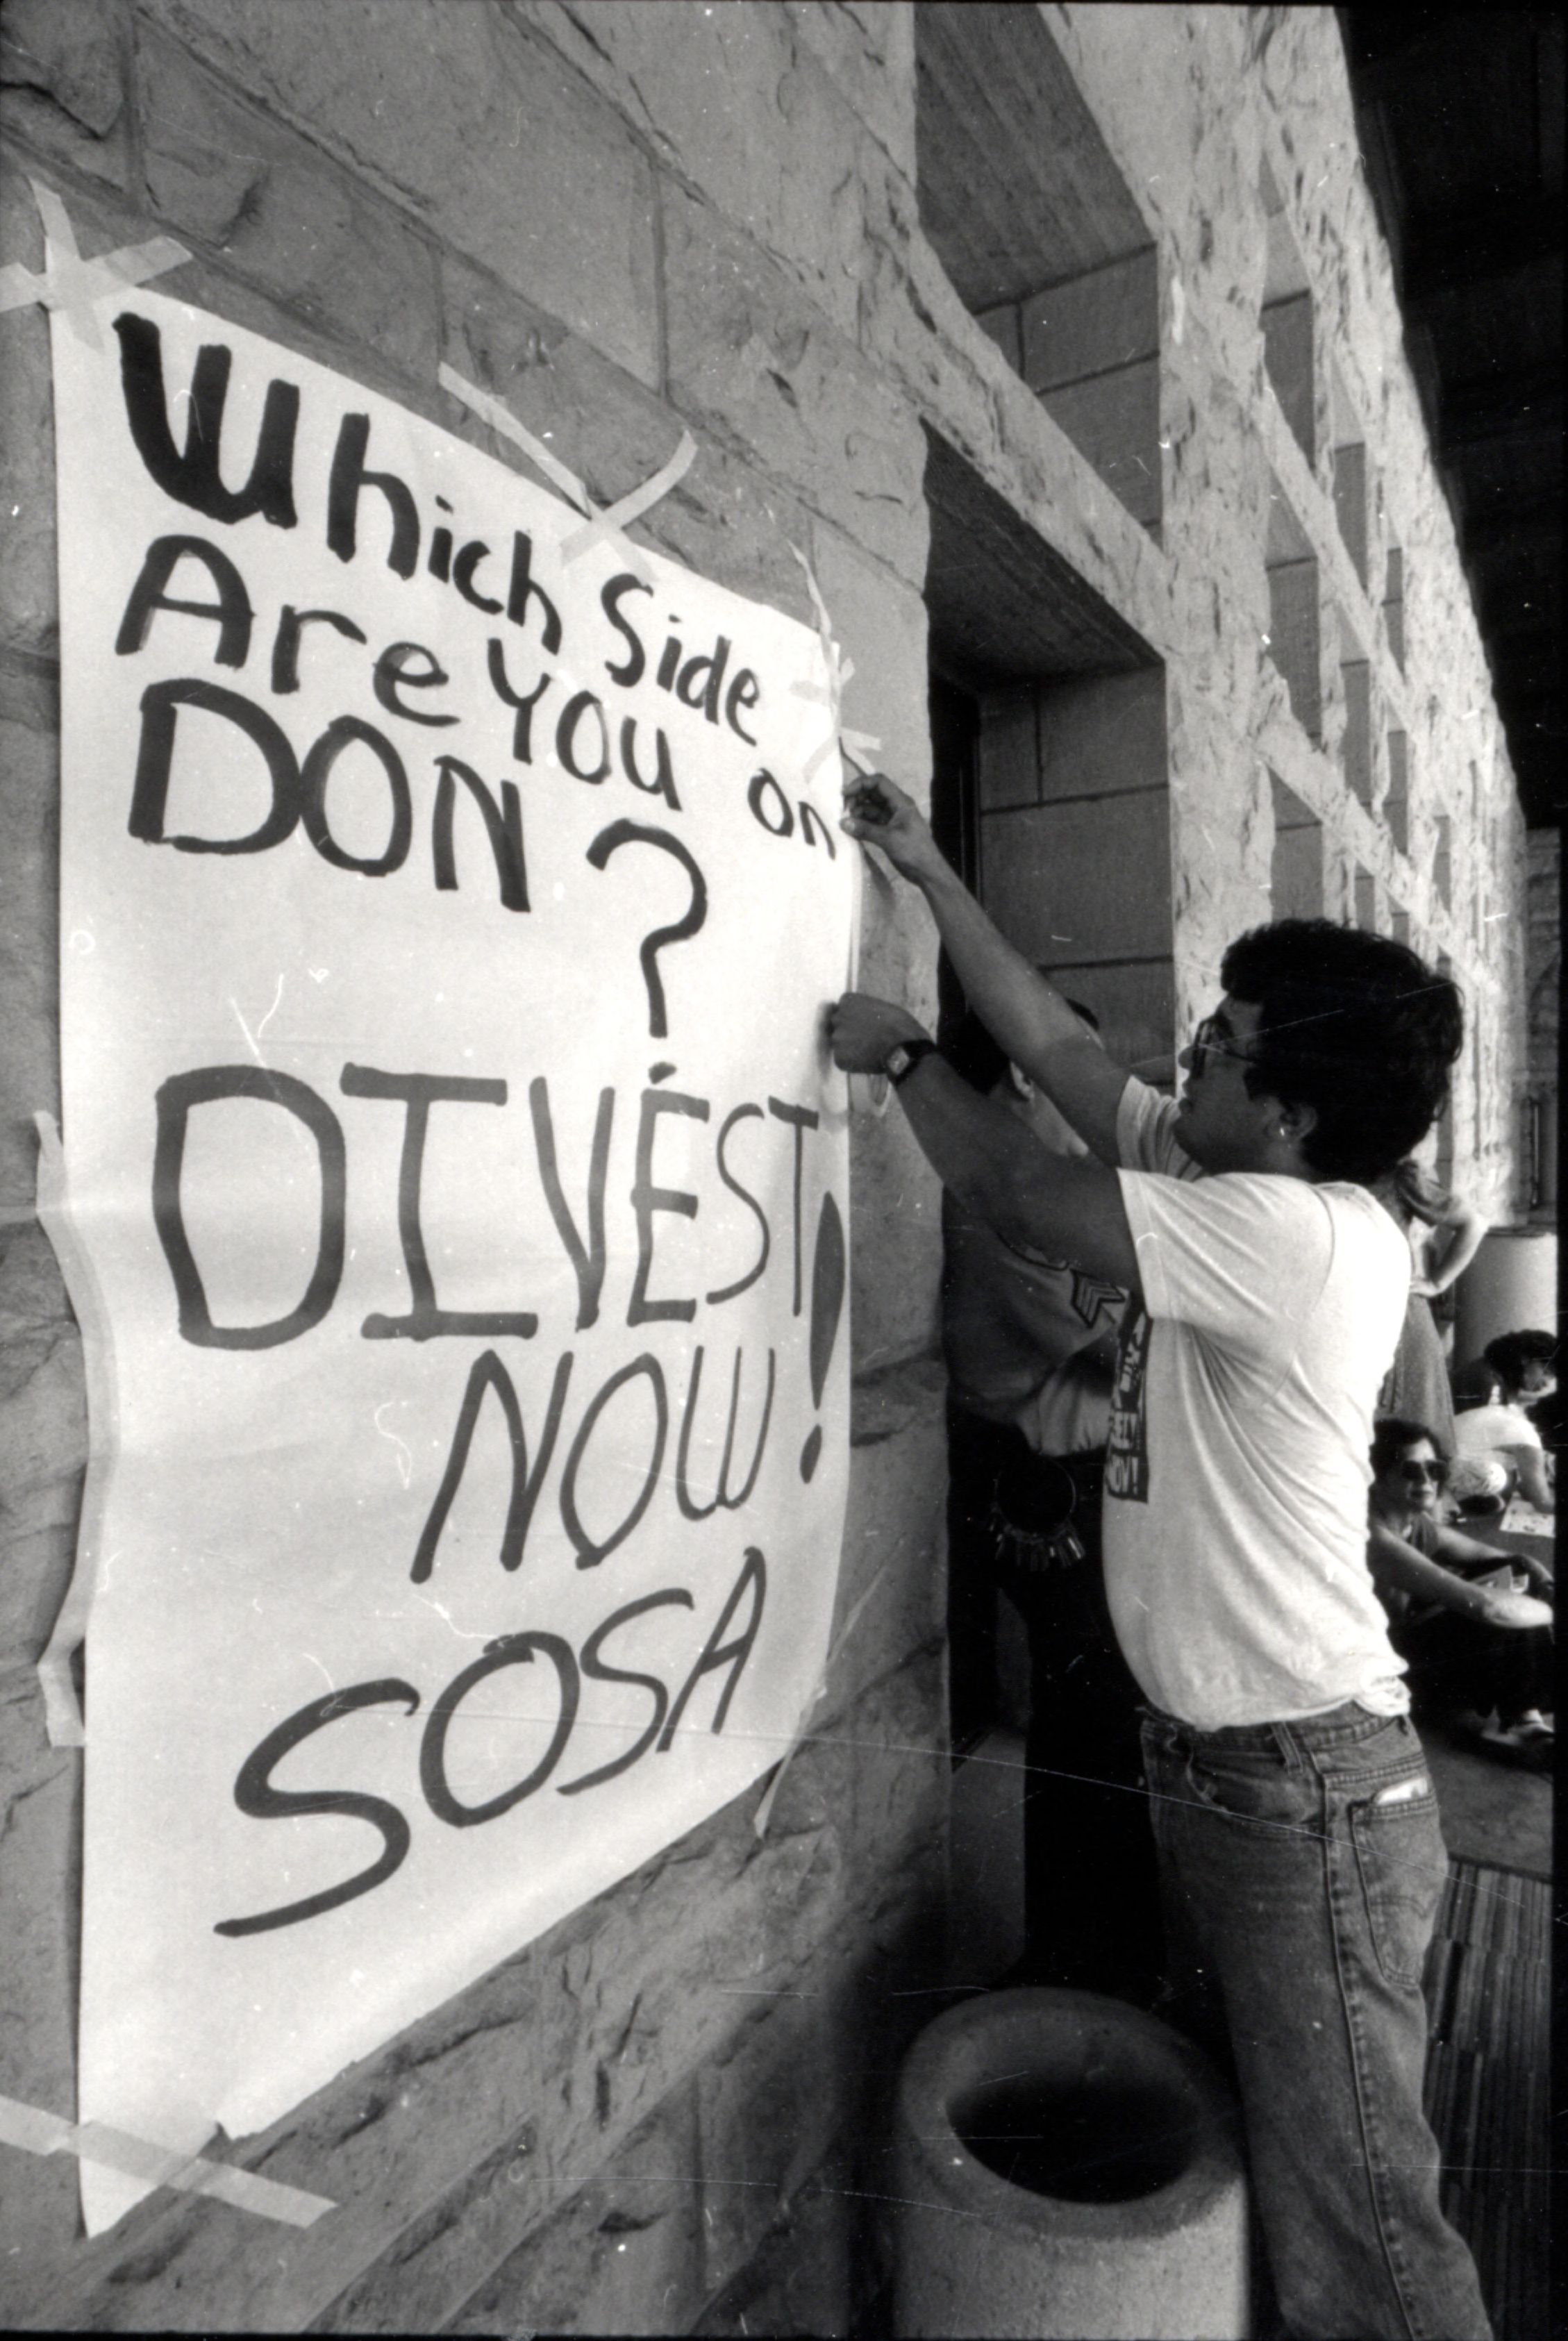 Which Side
Are You on
DON ?
DIVEST
NOW!
SOSA